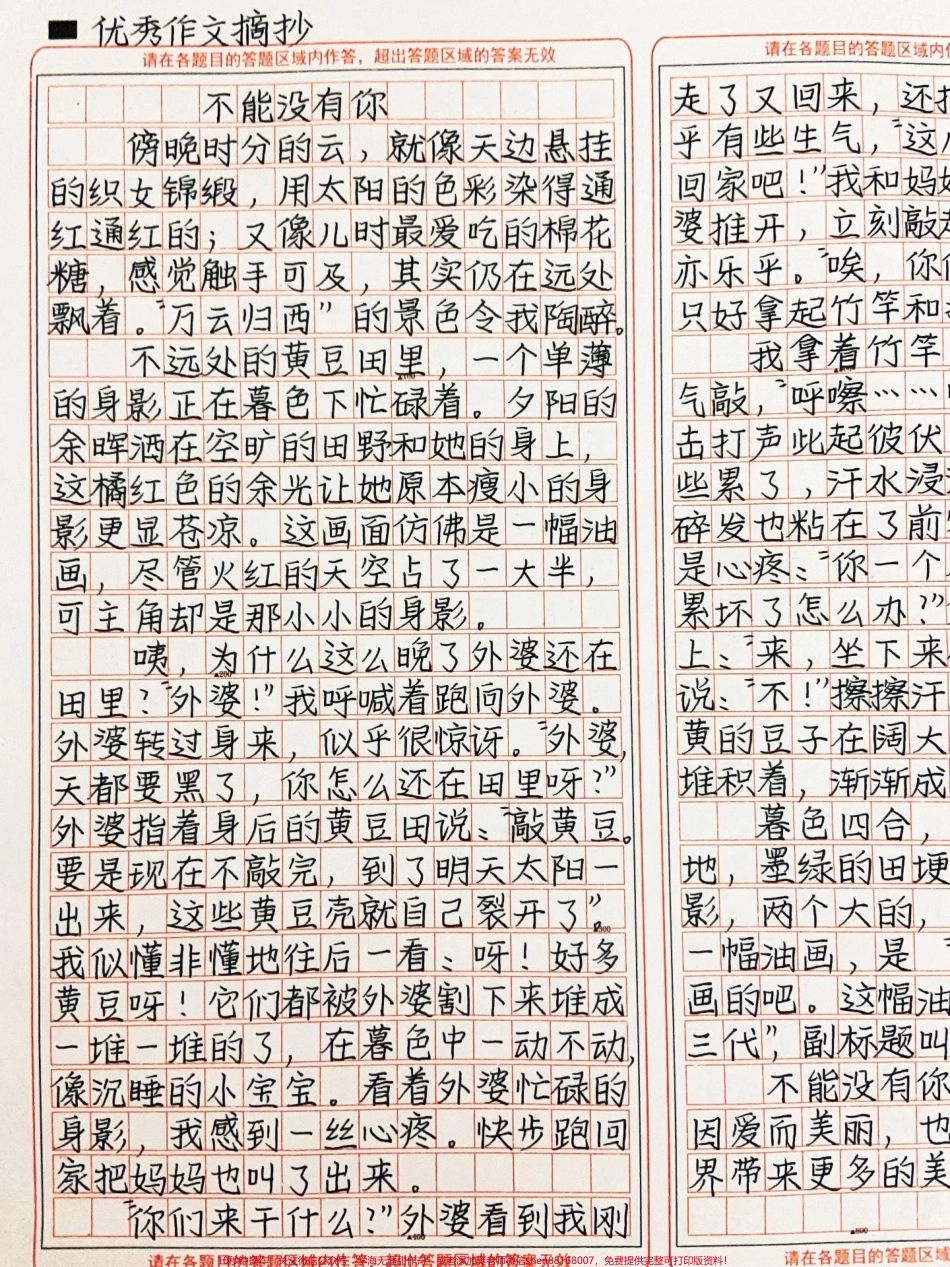 优秀作文摘抄
请在各题目的答题区域内作答，超出答题区域的答案无效
不能没有你
傍晚时分的云，就像天边悬挂
的织女锦缎，用太阳的色彩染得通
红通红的；又像儿时最爱吃的棉花
糖，感觉触手可及，其实仍在远处
飘着。“万云归西”的景色令我陶醉。
不远处的黄豆田里，一个单薄
的身影正在暮色下忙碌着。夕阳的
余晖洒在空旷的田野和她的身上，
这橘红色的余光让她原本瘦小的身
影更显苍凉。这画面仿佛是一幅油
画，尽管火红的天空占了一大半，
可主角却是那小小的身影。
咦，为什么这么晚了外婆还在
田里？“外婆！”我呼喊着跑向外婆。
外婆转过身来，似乎很惊讶。“外婆，
天都要黑了，你怎么还在田里呀？”
外婆指着身后的黄豆田说：“敲黄豆。
要是现在不敲完，到了明天太阳一
出来，这些黄豆壳就自己裂开了”。
我似懂非懂地往后一看：呀！好多
黄豆呀！它们都被外婆割下来堆成
一堆一堆的了，在暮色中一动不动，
像沉睡的小宝宝。看着外婆忙碌的
身影，我感到一丝心疼。快步跑回
家把妈妈也叫了出来。
“你们来干什么？”外婆看到我刚
请在各题目的答题区域内
走了又回来，还
乎有些生气，“这
回家吧！”我和妈妈
婆推开，立刻敲
亦乐乎。“唉，你
只好拿起竹竿和
我拿着竹竿
气敲，“呼嚓……
击打声此起彼伏
些累了，汗水浸
碎发也粘在了前
是心疼：“你一个
累坏了怎么办？”
上：“来，坐下来
说：“不！”擦擦汗
黄的豆子在阔大
堆积着，渐渐成
暮色四合，
地，墨绿的田埂
影，两个大的，
一幅油画，是
画的吧。这幅油
三代”，副标题叫
不能没有你
因爱而美丽，也
界带来更多的美
请在各题目的答题区域